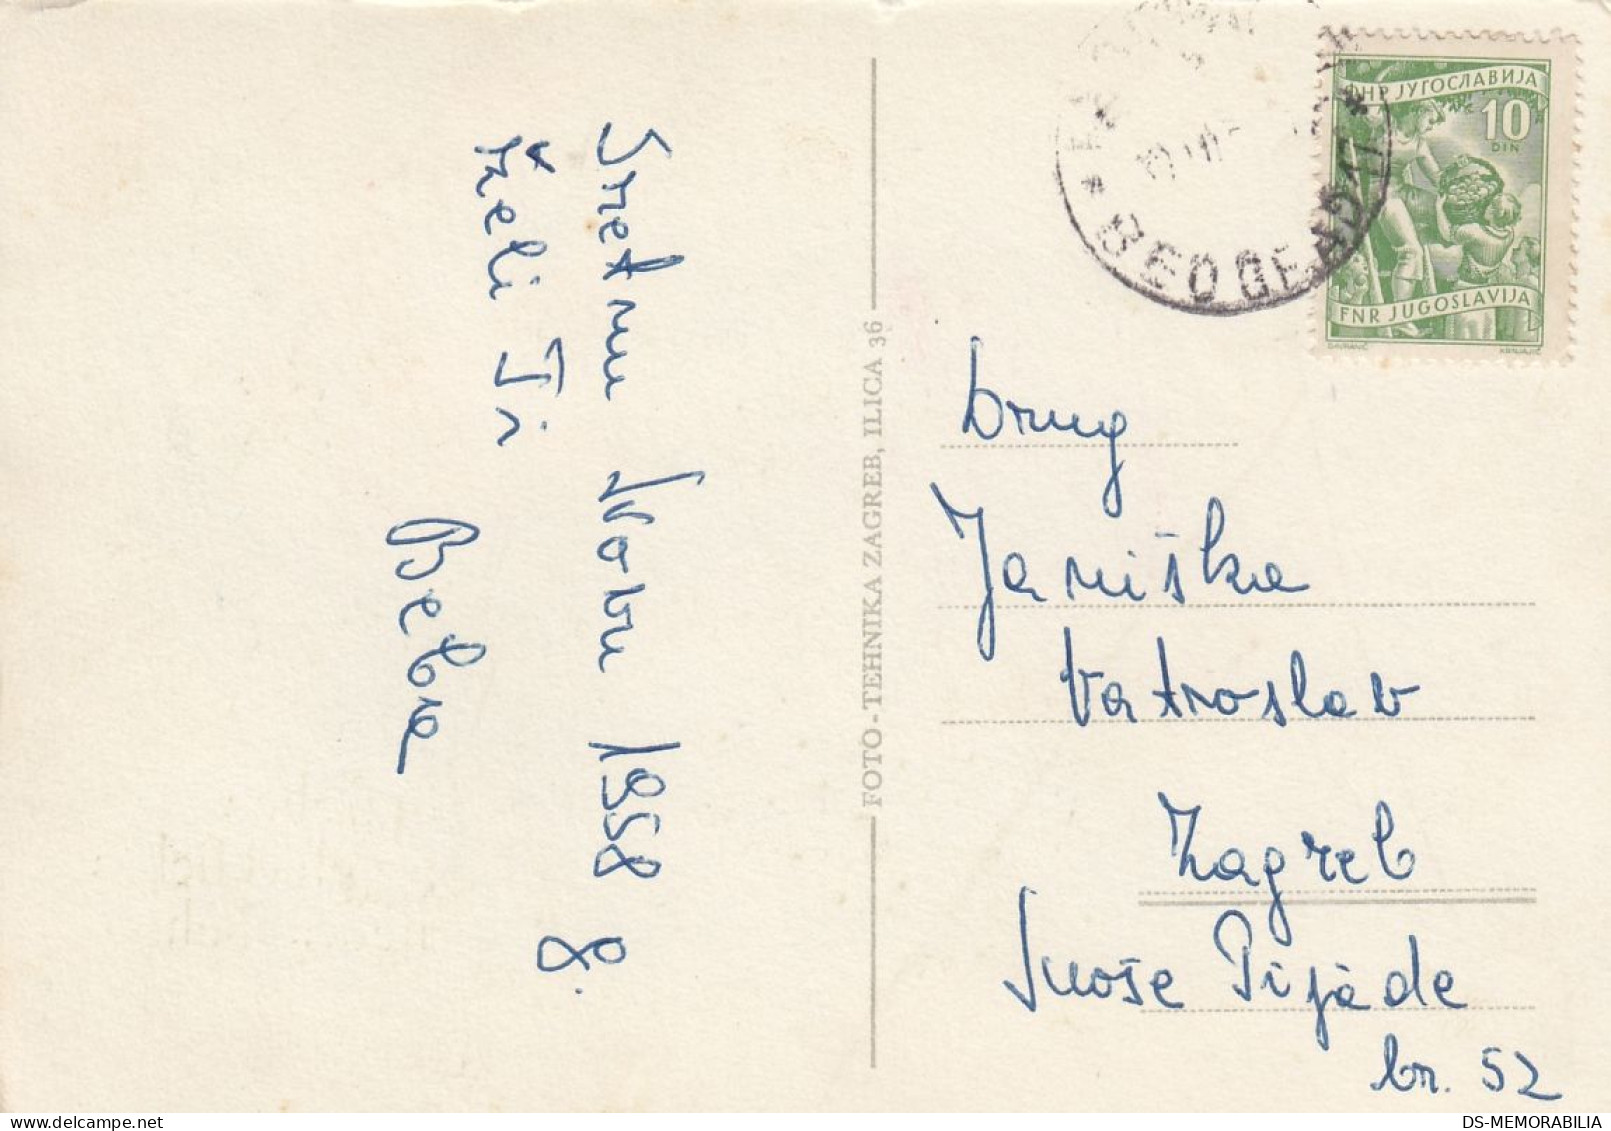 Sretnu Novu 1958 g.
želi Ti
Beba
FOTO-TEHNIKA ZAGREB, ILICA 36
BEOGRAD
ФНР ЈУГОСЛАВИЈА
10
DIN
FNR JUGOSLAVIJA
Drug
Janiška
Vatroslav
Zagreb
Moše Pijade
br. 52
DS-MEMORABILIA